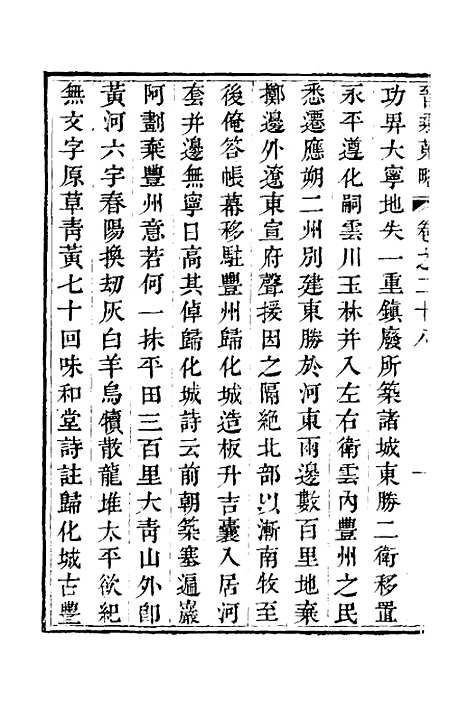 晉乘蒐略 卷之二十八
功畀大寧地失一重鎮廢所築諸城東勝二衛移置
永平遵化嗣雲川玉林并入左右衛雲內豐州之民
悉遷應朔二州別建東勝於河東兩邊數百里地棄
擲邊外遼東宣府聲援因之隔絶北部以漸南牧至
後俺答帳幕移駐豐州歸化城造板升吉囊入居河
套并邊無寧日高其倬歸化城詩云前朝築塞遍巖
阿劃棄豐州意若何一抹平田三百里大靑山外卽
黃河六字春陽換刧灰白羊烏犢散龍堆太平欲紀
無文字原草靑黃七十回味和堂詩註歸化城古豐